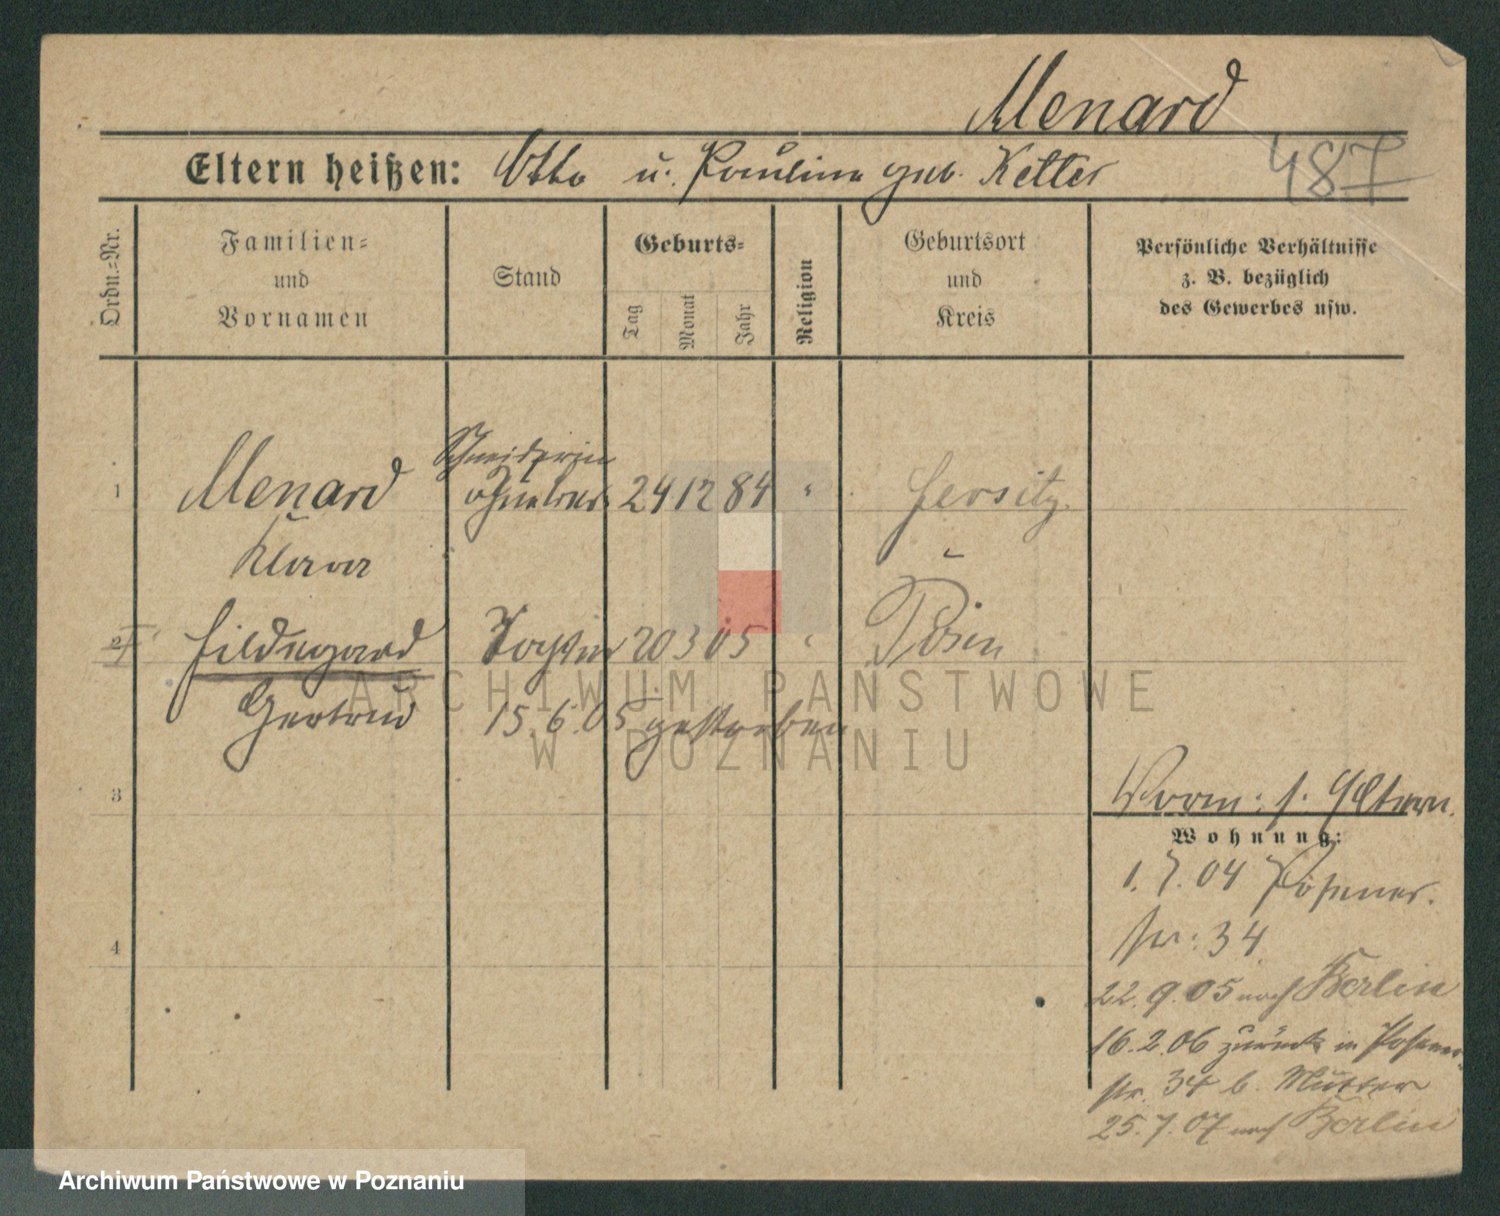 Menard
Eltern heißen: Otto u. Pauline geb. Ketter
487
Ordn.=Nr.
Familien=
und
Vornamen
Stand
Geburts=
Tag
Monat
Jahr
Religion
Geburtsort
und
Kreis
Persönliche Verhältnisse
z. B. bezüglich
des Gewerbes usw.
Schneiderin
1 Menard 24 12 84 " Jersitz
Klara
2 Hildegard Tochter 20 3 05 " Posen
Gertrud 15.6.05 gestorben
ARCHIWUM PAŃSTWOWE
W POZNANIU
3
Vorm: s. Eltern.
Wohnung:
1.7.04 Posener.
str: 34
4
22.9.05 nach Berlin
16.2.06 zurück in Posener
str. 34 b. Mutter
25.7.07 nach Berlin
Archiwum Państwowe w Poznaniu